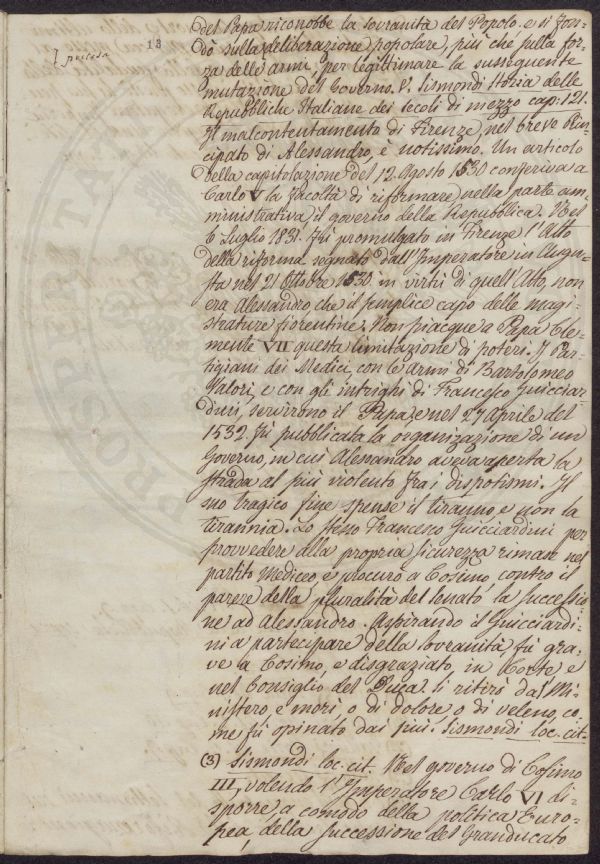 13
del Papa riconobbe la sovranità del Popolo. e si fon-
dò sulla deliberazione popolare, più ché sulla for-
za delle armi, per legittimare la susseguente
mutazione del Governo. V. Sismondi Storia delle
Repubbliche Italiane dei secoli di mezzo cap. 121.
Il malcontentamento di Firenze, nel breve Prin-
cipato di Alessandro, è notissimo. Un articolo
della capitolazione del 12. Agosto 1530 conferiva a
Carlo V la facoltà di riformare nella parte am-
ministrativa il governo della Repubblica. Nel
6 Luglio 1831. fù promulgato in Firenze l'Atto
della riforma segnato dall'Imperatore in Augu-
sta nel 21 Ottobre 1530. in virtù di quell'Atto, non
era Alessandro che il semplice capo delle magi-
strature fiorentine. Non piacque a Papa Cle-
mente VII questa limitazione di poteri. I Par-
tigiani dei Medici, con le armi di Bartolomeo
Valori, e con gli intrighi di Francesco Guicciar-
dini, servirono il Papa e nel 27 Aprile del
1532. fù pubblicata la organizazione di un
Governo, in cui Alessandro aveva aperta la
strada al più violento frai dispotismi. Il
suo tragico fine, spense il tiranno e non la
tirannia. Lo stesso Francesco Guicciardini per
provvedere alla propria sicurezza rimase nel
partito Mediceo, e procurò a Cosimo contro il
parere della pluralità del Senato la successio-
ne ad Alessandro. Aspirando il Guicciardi-
ni a partecipare della Sovranità fù gra-
ve a Cosimo, e disgraziato in Corte e
nel Consiglio del Duca. si ritirò dal Mi-
nistero e morì, o di dolore, o di veleno, co-
me fù opinato dai più. Sismondi loc. cit.
(3) Sismondi loc. cit. Nel governo di Cosimo
III, volendo l'Imperatore Carlo VI di-
sporre, a comodo della politica Euro-
pea, della successione del Granducato
PROSPERITAT